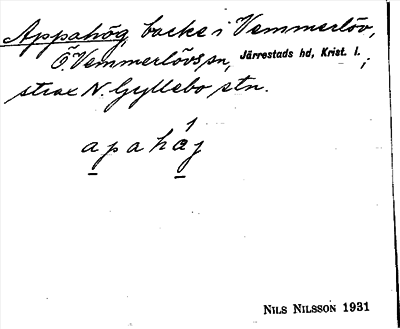 Appahög, backe i Vemmerlöv,
Ö. Vemmerlövs sn, Järrestads hd, Krist. l.;
strax N. Gyllebo stn.
apahój
NILS NILSSON 1931